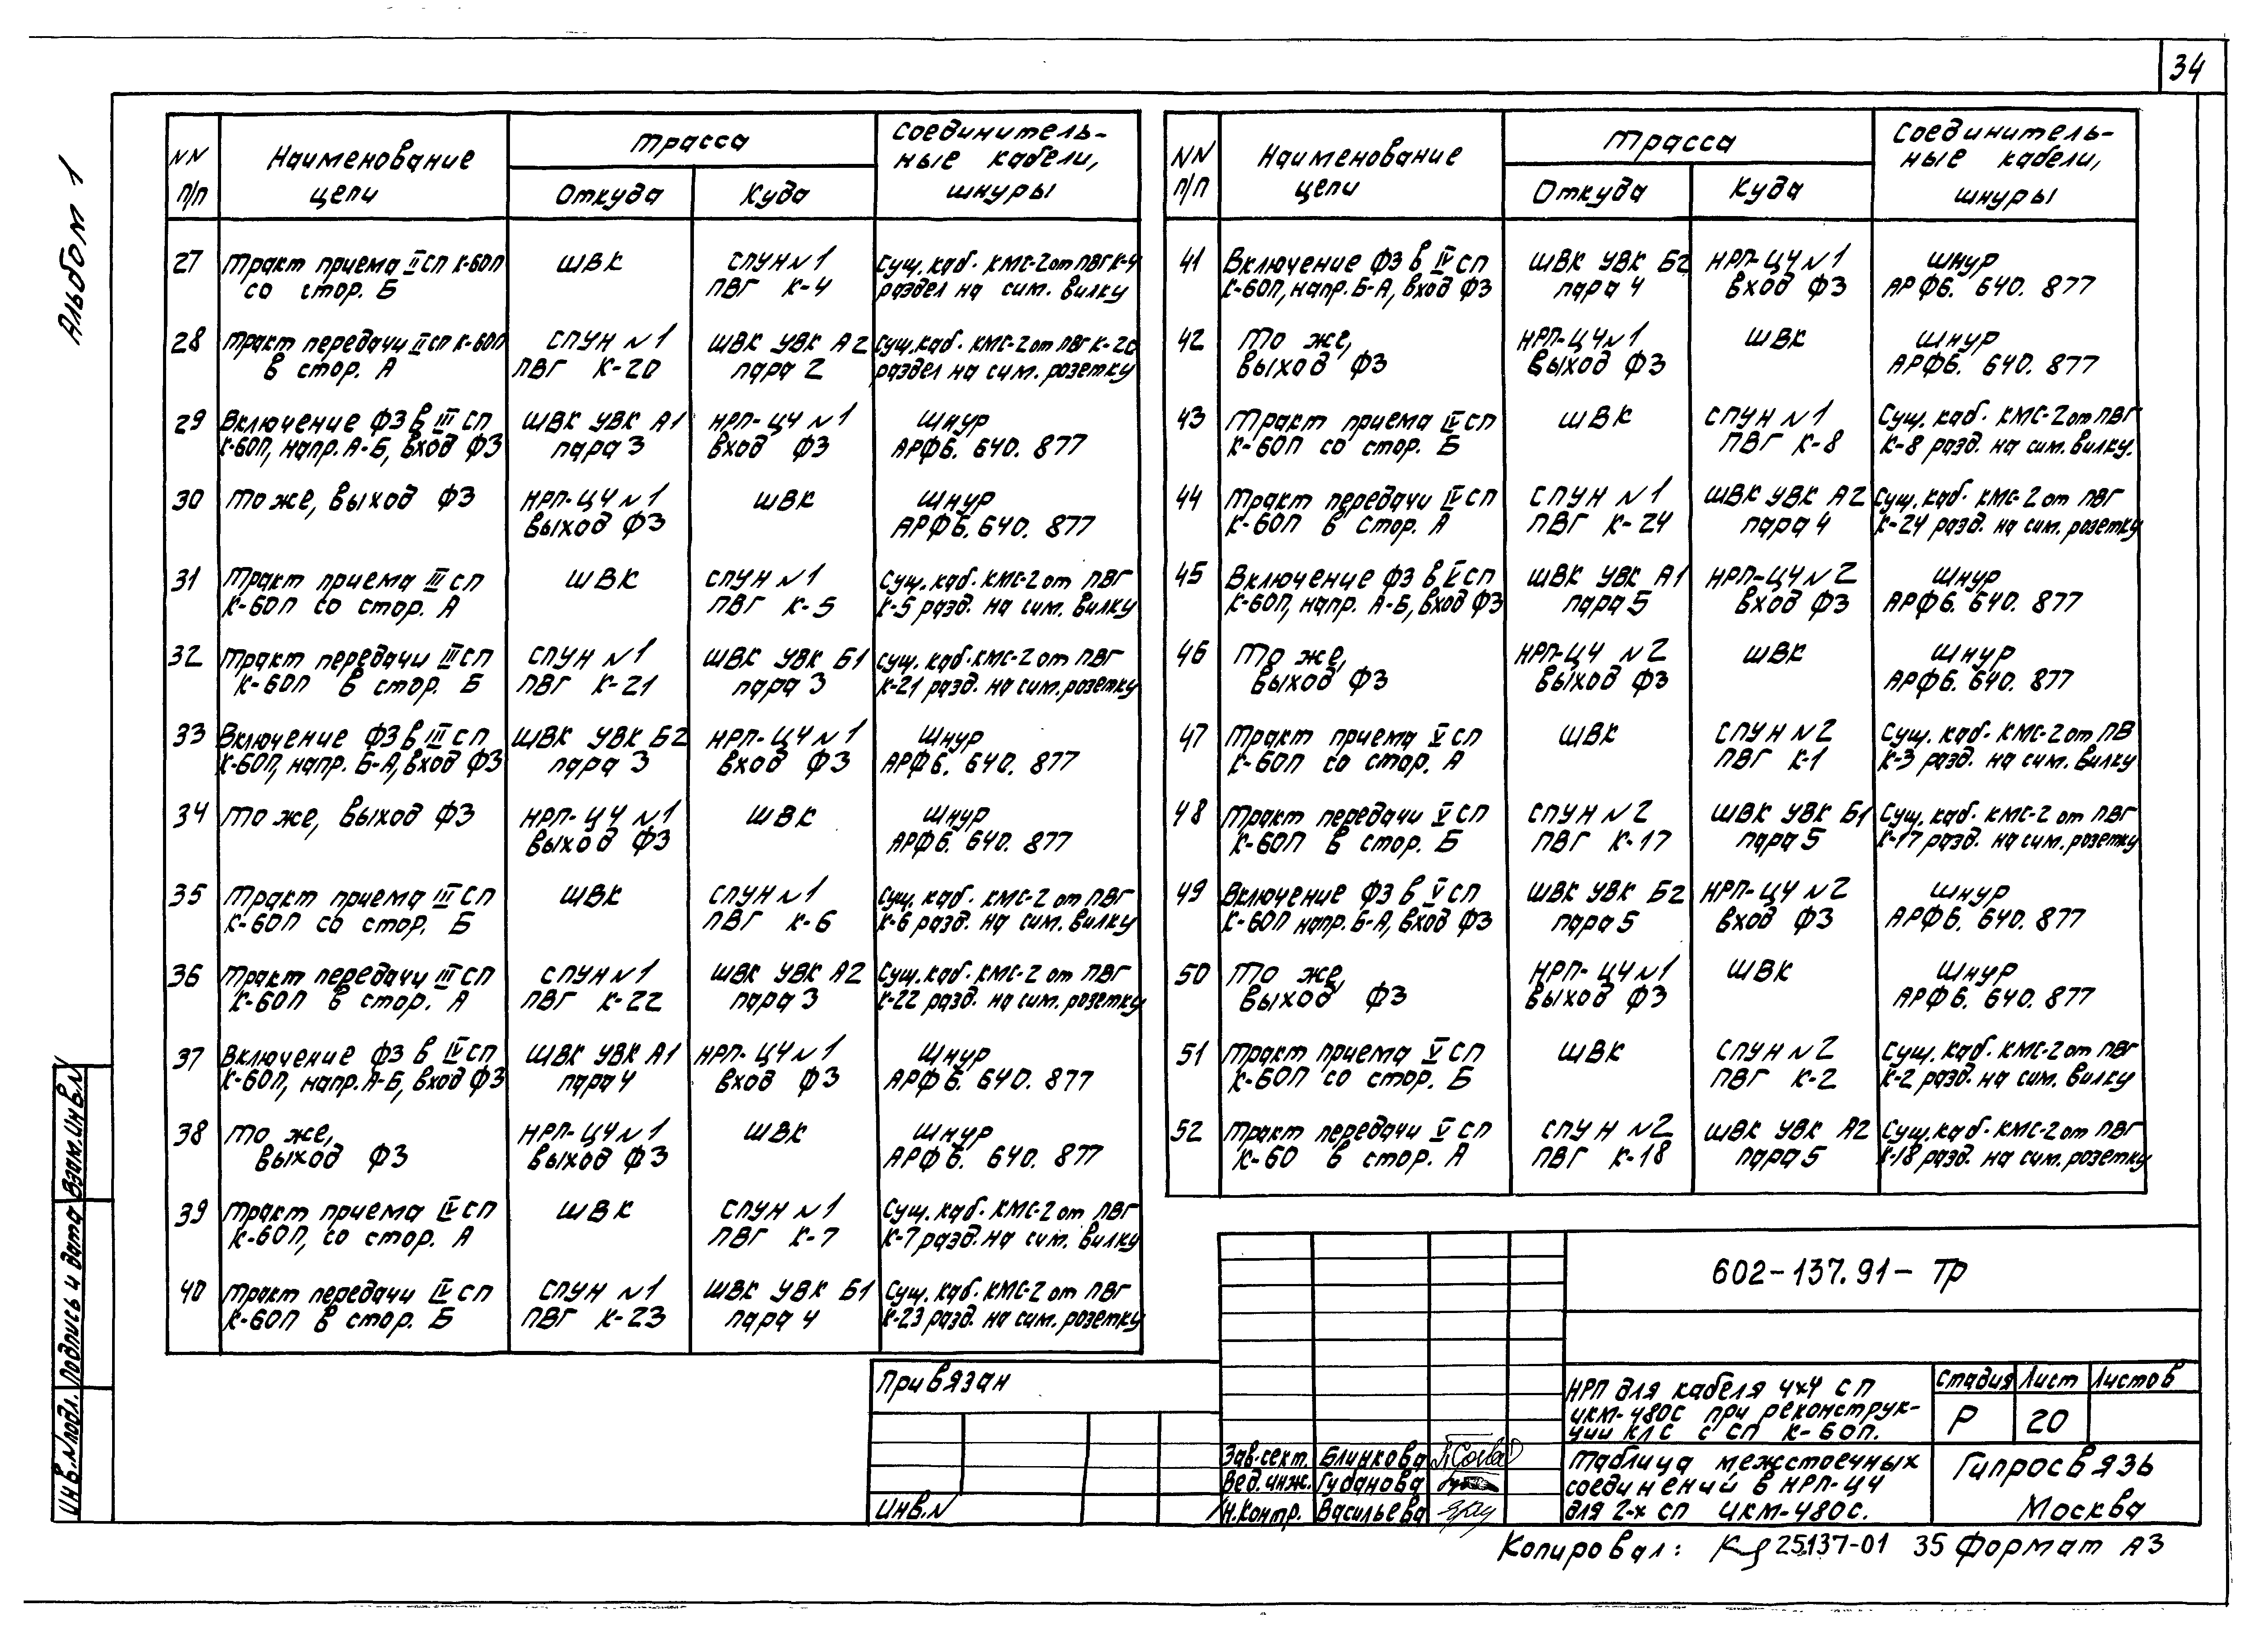 34
Альбом 1
NN п/п
Наименование цепи
Трасса
Откуда
Куда
Соединитель-
ные кабели,
шнуры
27 Тракт приема II сп К-60П ШВК СПУН N1 Сущ. каб. КМС-2 от ПВГ К-4
со стор. Б ПВГ К-4 раздел на сим. вилку
28 Тракт передачи II сп К-60П СПУН N1 ШВК УВК А2 Сущ. каб. КМС-2 от ПВГ К-20
в стор. А ПВГ К-20 пара 2 раздел на сим. розетку
29 Включение ФЗ в III сп ШВК УВК А1 НРП-Ц4 N1 Шнур
К-60П, напр. А-Б, вход ФЗ пара 3 вход ФЗ АРФ6. 640. 877
30 То же, выход ФЗ НРП-Ц4 N1 ШВК Шнур
выход ФЗ АРФ6. 640. 877
31 Тракт приема III сп ШВК СПУН N1 Сущ. каб. КМС-2 от ПВГ
К-60П со стор. А ПВГ К-5 К-5 разд. на сим. вилку
32 Тракт передачи III сп СПУН N1 ШВК УВК Б1 Сущ. каб. КМС-2 от ПВГ
К-60П в стор. Б ПВГ К-21 пара 3 К-21 разд. на сим. розетку
33 Включение ФЗ в III сп ШВК УВК Б2 НРП-Ц4 N1 Шнур
К-60П, напр. Б-А, вход ФЗ пара 3 вход ФЗ АРФ6. 640. 877
34 То же, выход ФЗ НРП-Ц4 N1 ШВК Шнур
выход ФЗ АРФ6. 640. 877
35 Тракт приема III сп ШВК СПУН N1 Сущ. каб. КМС-2 от ПВГ
К-60П со стор. Б ПВГ К-6 К-6 разд. на сим. вилку
36 Тракт передачи III сп СПУН N1 ШВК УВК А2 Сущ. каб. КМС-2 от ПВГ
К-60П в стор. А ПВГ К-22 пара 3 К-22 разд. на сим. розетку
37 Включение ФЗ в IV сп ШВК УВК А1 НРП-Ц4 N1 Шнур
К-60П, напр. А-Б, вход ФЗ пара 4 вход ФЗ АРФ6. 640. 877
38 То же, НРП-Ц4 N1 ШВК Шнур
выход ФЗ выход ФЗ АРФ6. 640. 877
39 Тракт приема IV сп ШВК СПУН N1 Сущ. каб. КМС-2 от ПВГ
К-60П, со стор. А ПВГ К-7 К-7 разд. на сим. вилку
40 Тракт передачи IV сп СПУН N1 ШВК УВК Б1 Сущ. каб. КМС-2 от ПВГ
К-60П в стор. Б ПВГ К-23 пара 4 К-23 разд. на сим. розетку
NN п/п
Наименование цепи
Трасса
Откуда
Куда
Соединитель-
ные кабели,
шнуры
41 Включение ФЗ в IV сп ШВК УВК Б2 НРП-Ц4 N1 Шнур
К-60П, напр. Б-А, вход ФЗ пара 4 вход ФЗ АРФ6. 640. 877
42 То же, НРП-Ц4 N1 ШВК Шнур
выход ФЗ выход ФЗ АРФ6. 640. 877
43 Тракт приема IV сп ШВК СПУН N1 Сущ. каб. КМС-2 от ПВГ
К-60П со стор. Б ПВГ К-8 К-8 разд. на сим. вилку.
44 Тракт передачи IV сп СПУН N1 ШВК УВК А2 Сущ. каб. КМС-2 от ПВГ
К-60П в стор. А ПВГ К-24 пара 4 К-24 разд. на сим. розетку
45 Включение ФЗ в V сп ШВК УВК А1 НРП-Ц4 N2 Шнур
К-60П, напр. А-Б, вход ФЗ пара 5 вход ФЗ АРФ6. 640. 877
46 То же, НРП-Ц4 N2 ШВК Шнур
выход ФЗ выход ФЗ АРФ6. 640. 877
47 Тракт приема V сп ШВК СПУН N2 Сущ. каб. КМС-2 от ПВ
К-60П со стор. А ПВГ К-1 К-3 разд. на сим. вилку
48 Тракт передачи V сп СПУН N2 ШВК УВК Б1 Сущ. каб. КМС-2 от ПВГ
К-60П в стор. Б ПВГ К-17 пара 5 К-17 разд. на сим. розетку
49 Включение ФЗ в V сп ШВК УВК Б2 НРП-Ц4 N2 Шнур
К-60П напр. Б-А, вход ФЗ пара 5 вход ФЗ АРФ6. 640. 877
50 То же, НРП-Ц4 N1 ШВК Шнур
выход ФЗ выход ФЗ АРФ6. 640. 877
51 Тракт приема V сп ШВК СПУН N2 Сущ. каб. КМС-2 от ПВГ
К-60П со стор. Б ПВГ К-2 К-2 разд. на сим. вилку
52 Тракт передачи V сп СПУН N2 ШВК УВК А2 Сущ. каб. КМС-2 от ПВГ
К-60 в стор. А ПВГ К-18 пара 5 К-18 разд. на сим. розетку
Инв. N подл. Подпись и дата Взам. инв. N
Привязан
Инв. N
602-137.91-ТР
НРП для кабеля 4х4 сп
ИКМ-480С при реконструк-
ции КЛС с СП К-60П.
Стадия Лист Листов
Р 20
Зав. сект. Блинкова
Вед. инж. Губанова
Н. контр. Васильева
Таблица межстоечных
соединений в НРП-Ц4
для 2-х сп ИКМ-480С.
Гипросвязь
Москва
Копировал: 25137-01 35 Формат А3